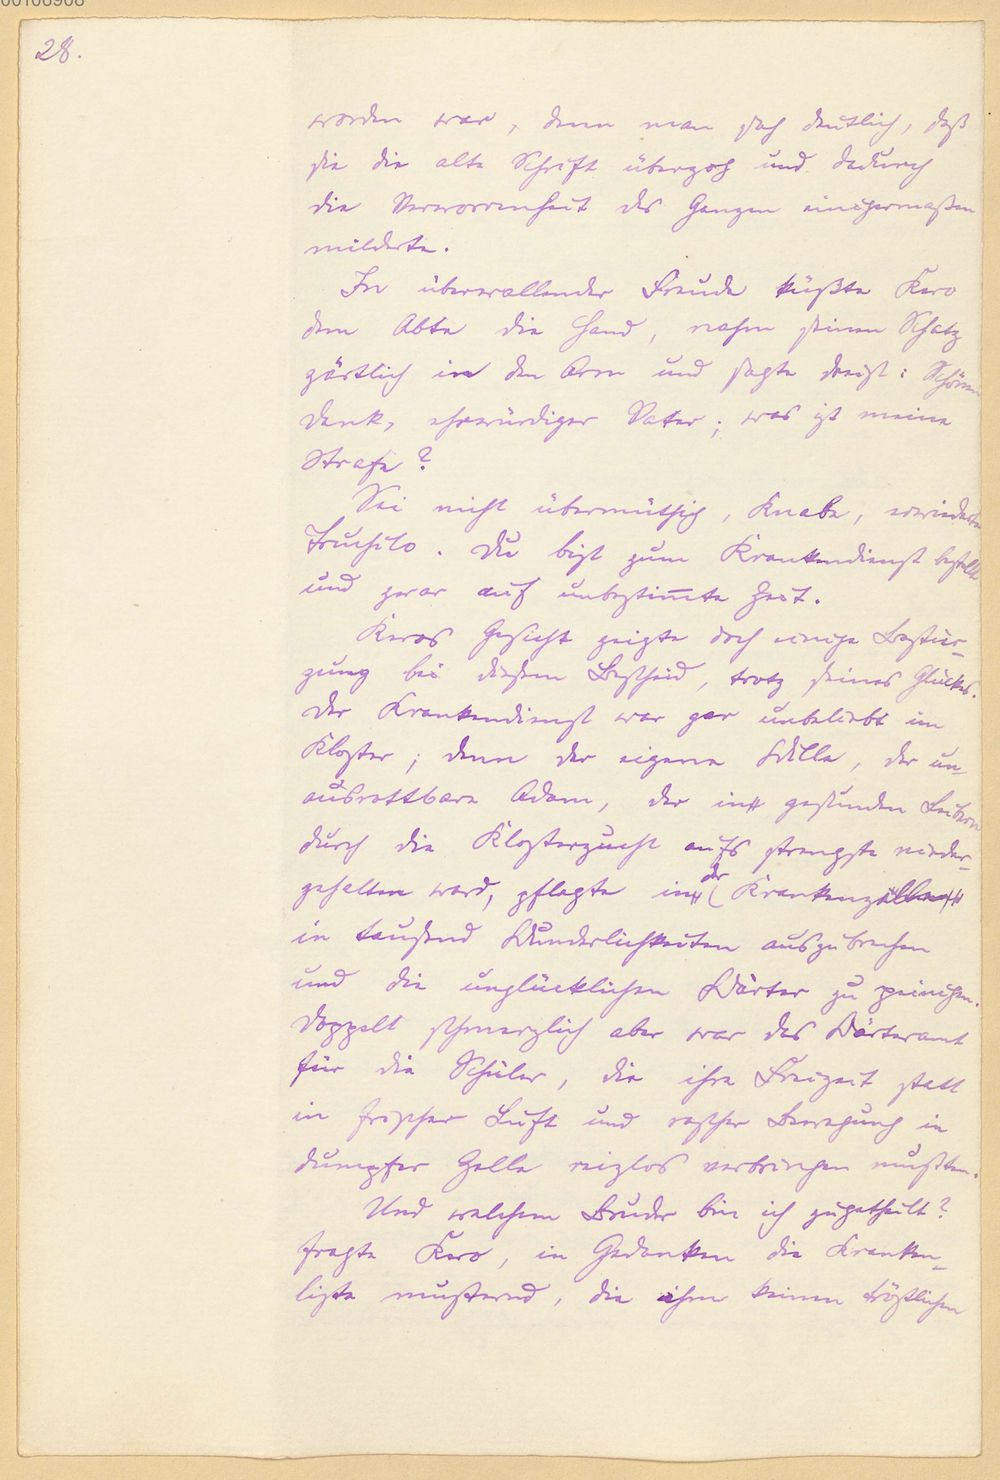 00106908
28.
worden war, denn man sah deutlich, daß
sie die alte Schrift überzog und dadurch
die Verworrenheit des Ganzen einigermaßen
milderte.
In überwallender Freude küßte Kero
dem Abte die Hand, nahm seinen Schatz
zärtlich in den Arm und sagte dreist: Schönen
Dank, ehrwürdiger Vater; was ist meine
Strafe?
Sei nicht übermüthig, Knabe, erwiederte
Fruchilo. Du bist zum Krankendienst bestellt
und zwar auf unbestimmte Zeit.
Keros Gesicht zeigte doch einige Bestür-
zung bei diesem Bescheid, trotz seines Glückes.
Der Krankendienst war gar unbeliebt im
Kloster; denn der eigene Wille, der un-
ausrottbare Adam, der in gesunden Leibern
durch die Klosterzucht aufs strengste nieder-
gehalten ward, pflegte in der Krankenzelle
in tausend Wunderlichkeiten auszubrechen
und die unglücklichen Wärter zu peinigen.
Doppelt schmerzlich aber war das Wärteramt
für die Schüler, die ihre Freizeit statt
in frischer Luft und rascher Bewegung in
dumpfer Zelle reizlos verbringen mußten.
Und welchem Bruder bin ich zugetheilt?
fragte Kero, in Gedanken die Kranken-
liste musternd, die ihm keinen tröstlichen